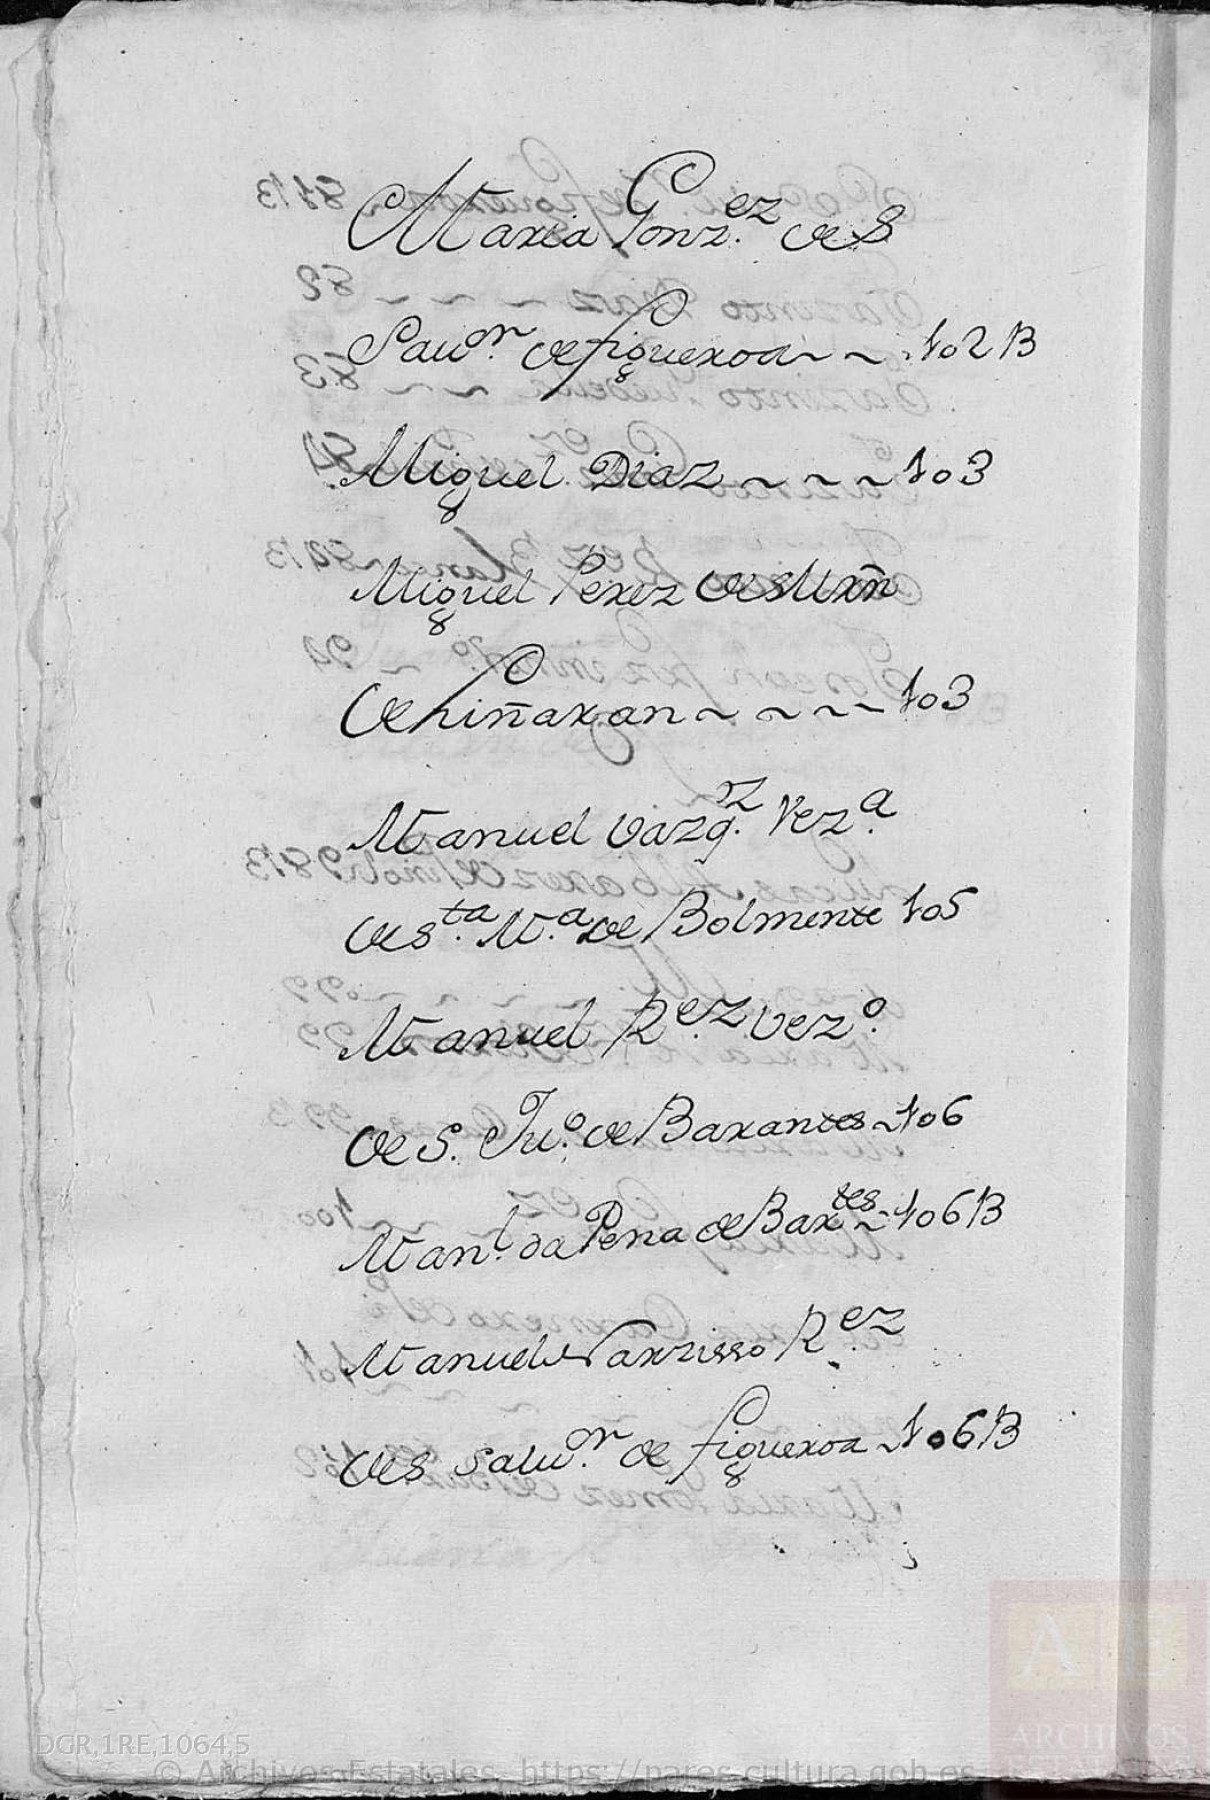 Maria Gonz.ez de S
Salv.or de figueroa ~ ~ 102 B
Miguel Diaz ~ ~ ~ 103
Miguel Perez de S Mrñ
de Piñaxan ~ ~ ~ ~ 103
Manuel Vazq.z Vez.a
de S.ta M.a de Bolmente 105
Manuel R.ez Vez.o
de S. Ju.o de Barantes ~ 106
Man.l da Pena de Bar.tes ~ 106 B
Manuel Narzisso R.ez
de S Salv.or de figueroa ~ 106 B
DGR,1RE,1064,5
© Archivos Estatales, https://pares.cultura.gob.es
A E
ARCHIVOS
ESTATALES